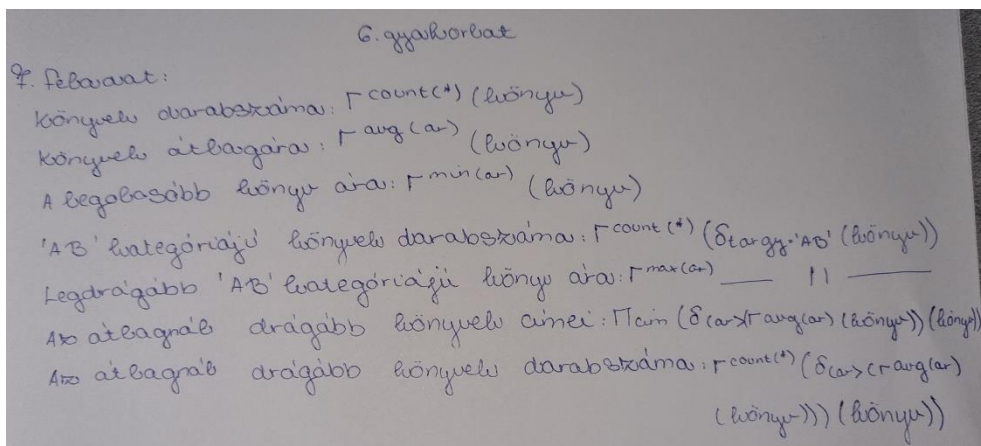 6. gyakorlat
7. feladat:
Könyvek darabszáma: Γ count(*) (könyv)
Könyvek átlagára: Γ avg(ar) (könyv)
A legolcsóbb könyv ára: Γ min(ar) (könyv)
'AB' kategóriájú könyvek darabszáma: Γ count(*) (δtargy='AB' (könyv))
Legdrágább 'AB' kategóriájú könyv ára: Γ max(ar) —— 11 ——
Az átlagnál drágább könyvek címei: Πcim (δ(ar>(Γ avg(ar) (könyv)) (könyv))
Az átlagnál drágább könyvek darabszáma: Γ count(*) (δ(ar>(Γ avg(ar)
(könyv))) (könyv))